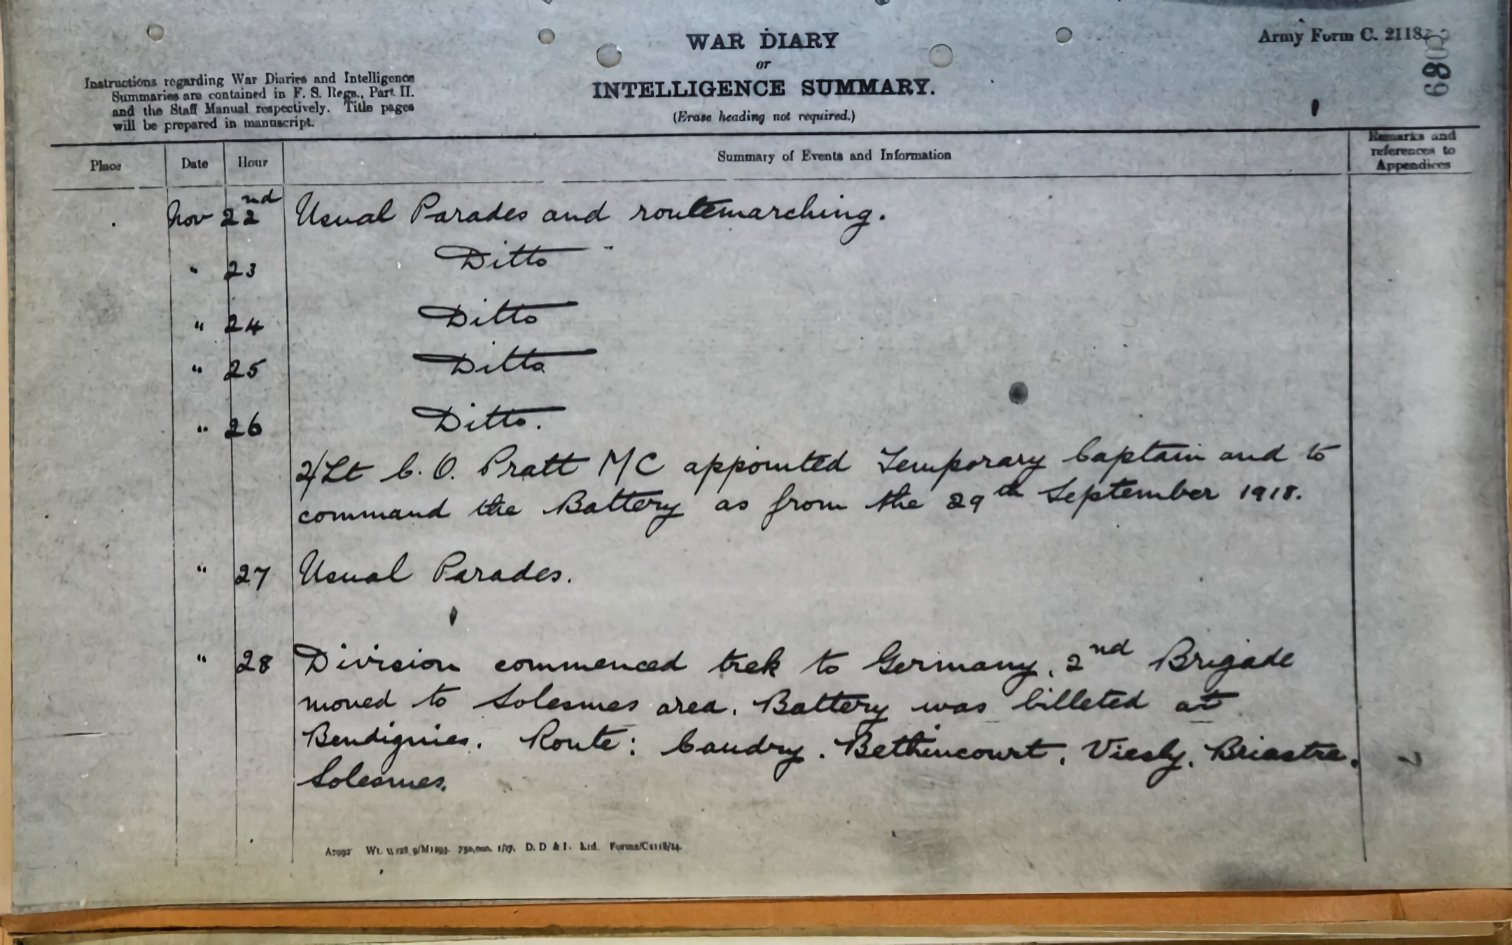 WAR DIARY
or
INTELLIGENCE SUMMARY.
(Erase heading not required.)
Army Form C. 2118.
Instructions regarding War Diaries and Intelligence
Summaries are contained in F. S. Regs., Part II.
and the Staff Manual respectively. Title pages
will be prepared in manuscript.
Place Date Hour Summary of Events and Information Remarks and
references to
Appendices
Nov 22nd Usual Parades and routemarching.
" 23 Ditto
" 24 Ditto
" 25 Ditto
" 26 Ditto.
2/Lt C. O. Pratt MC appointed Temporary Captain and to
command the Battery as from the 29th September 1918.
" 27 Usual Parades.
" 28 Division commenced trek to Germany. 2nd Brigade
moved to Solesmes area. Battery was billeted at
Bendignies. Route: Caudry. Bethincourt. Viesly. Briastre.
Solesmes.
D. D & L. Ltd. Forms/C2118/14.